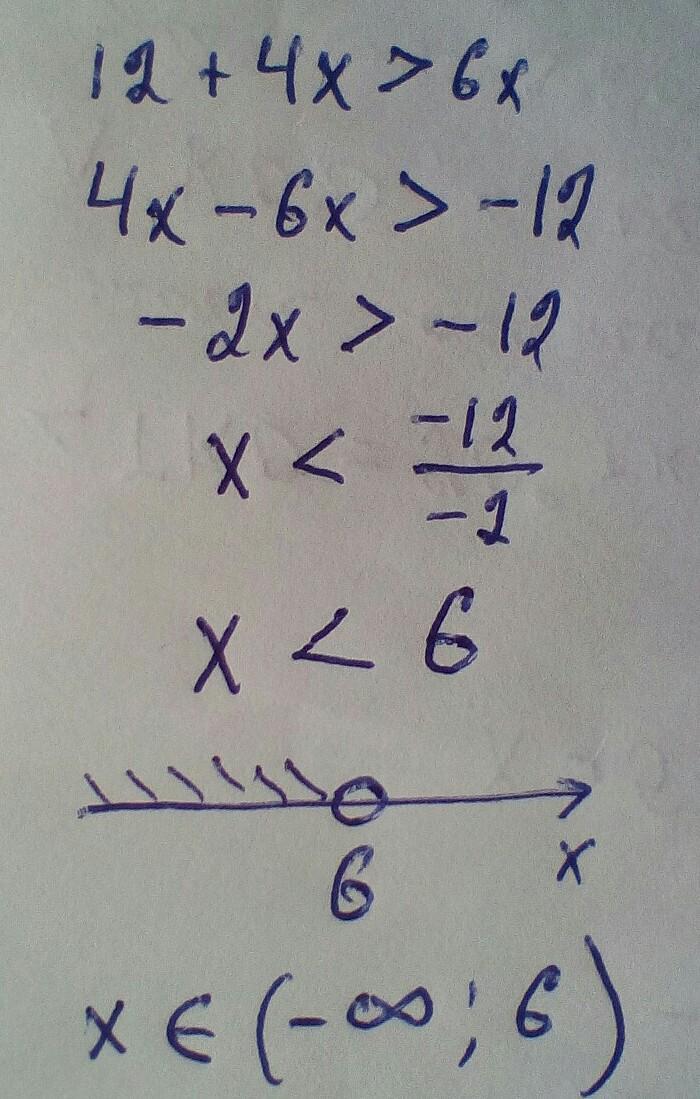 12 + 4x > 6x
4x - 6x > -12
-2x > -12
x < -12/-2
x < 6
6 x
x ∈ (-∞; 6)